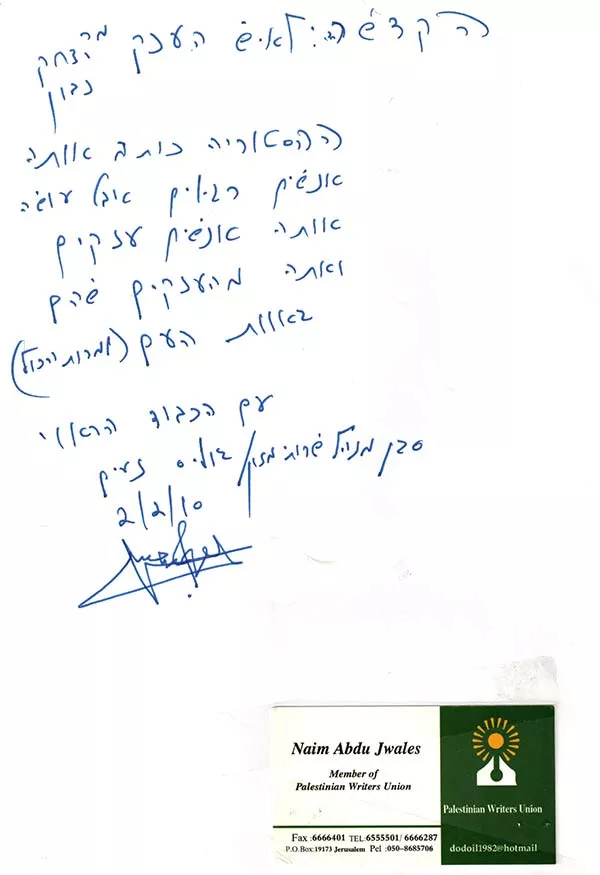 הקדשה: לאיש הענק מר יצחק
נבון
ההסטוריה כותב אותה
אנשים רגילים אבל עושה
אותה אנשים ענקים
ואתה מהענקים שהם
באמת העם (למרות הכול)
עם הכבוד הראוי
סבן מנהל שרותי מזון/ ג'וליס נעים
2/2/10
Naim Abdu Jwales
Member of
Palestinian Writers Union
Palestinian Writers Union
Fax :6666401 TEL:6555501/ 6666287
P.O.Box:19173 Jerusalem Pel :050-8685706
dodoil1982@hotmail